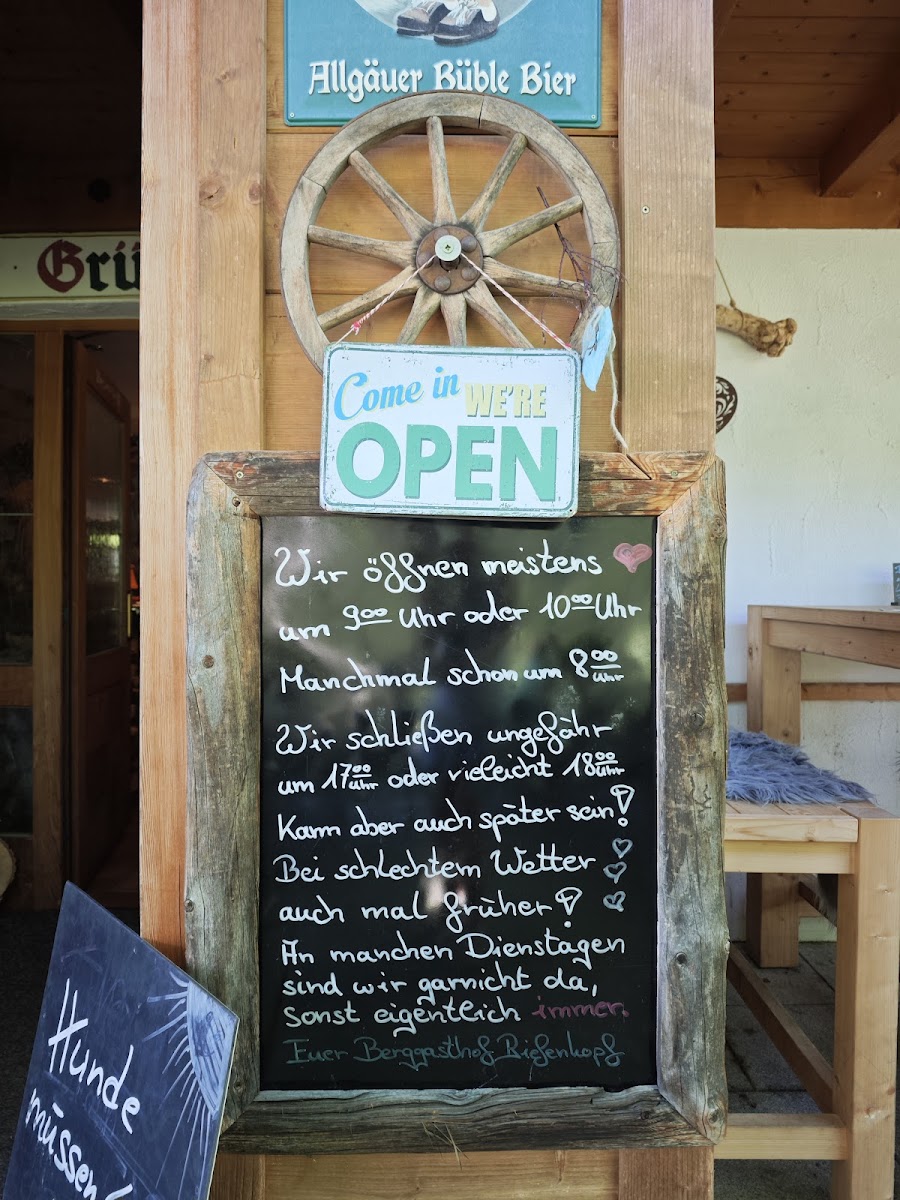 Allgäuer Büble Bier
Grü
Come in WE'RE
OPEN
Wir öffnen meistens
um 9⁰⁰ Uhr oder 10⁰⁰ Uhr
Manchmal schon um 8⁰⁰ Uhr
Wir schließen ungefähr
um 17⁰⁰ Uhr oder vieleicht 18⁰⁰ Uhr
Kann aber auch später sein!
Bei schlechtem Wetter
auch mal früher!
An manchen Dienstagen
sind wir garnicht da,
sonst eigentlich immer.
Euer Berggasthof Riefenkopf
Hunde
müssen